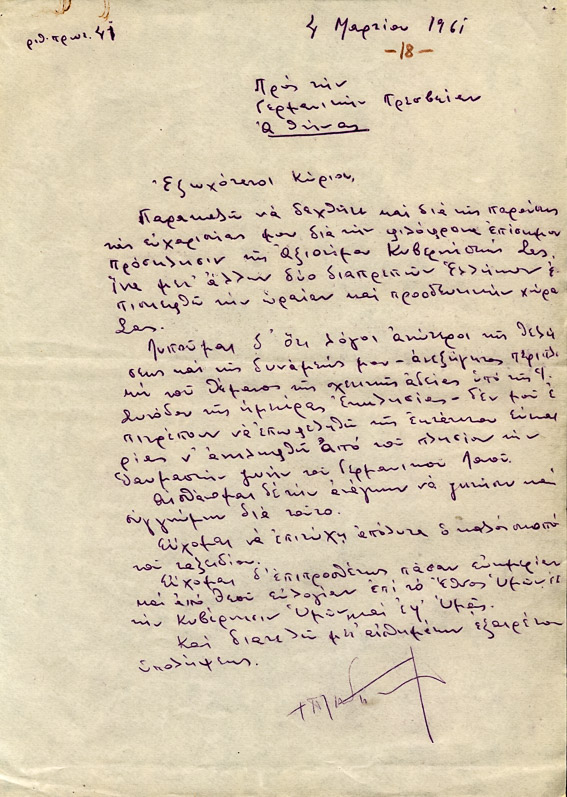 ριθ. πρωτ. 41
4 Μαρτίου 1961
-18-
Πρὸς τὴν
Γερμανικὴν Πρεσβείαν
Ἀθήνας
Ἐξοχότατοι Κύριοι,
Παρακαλῶ νὰ δεχθῆτε καὶ διὰ τῆς παρούσης
τὰς εὐχαριστίας μου διὰ τὴν φιλόφρονα ἐπίσημον
πρόσκλησιν τῆς Ἀξιοτίμου Κυβερνήσεώς Σας,
ἵνα μετ' ἄλλων δύο διαπρεπῶν Ἑλλήνων ἐ-
πισκεφθῶ τὴν ὡραίαν καὶ προοδευτικὴν χώρα
Σας.
Λυποῦμαι δ' ὅτι λόγοι ἀνώτεροι τῆς θελή-
σεως καὶ τῆς δυνάμεώς μου - ἀνεξήγητος περιπλο-
κὴ τοῦ θέματος τῆς σχετικῆς ἀδείας ὑπὸ τῆς Ἱ.
Συνόδου τῆς ἡμετέρας Ἐκκλησίας - δὲν μοῦ ἐ-
πιτρέπουν νὰ ἐπωφεληθῶ τῆς ἐκτάκτου εὐκαι-
ρίας ν' ἀντιληφθῶ ἀπὸ τοῦ πλησίον τὴν
θαυμαστὴν ζωὴν τοῦ Γερμανικοῦ Λαοῦ.
Αἰσθάνομαι δὲ τὴν ἀνάγκην νὰ ζητήσω καὶ
συγγνώμην διὰ τοῦτο.
Εὔχομαι νὰ ἐπιτύχῃ ἀπόλυτα ὁ καλὸς σκοπὸ
τοῦ ταξειδίου.
Εὔχομαι δ' ἐπιπροσθέτως πᾶσαν εὐημερίαν
καὶ ἀπὸ Θεοῦ εὐλογίαν ἐπὶ τὸ Ἔθνος Ὑμῶν,
τὴν Κυβέρνησιν Ὑμῶν καὶ ἐφ' Ὑμᾶς.
Καὶ διατελῶ μετ' αἰσθημάτων ἐξαιρέτου
ὑπολήψεως.